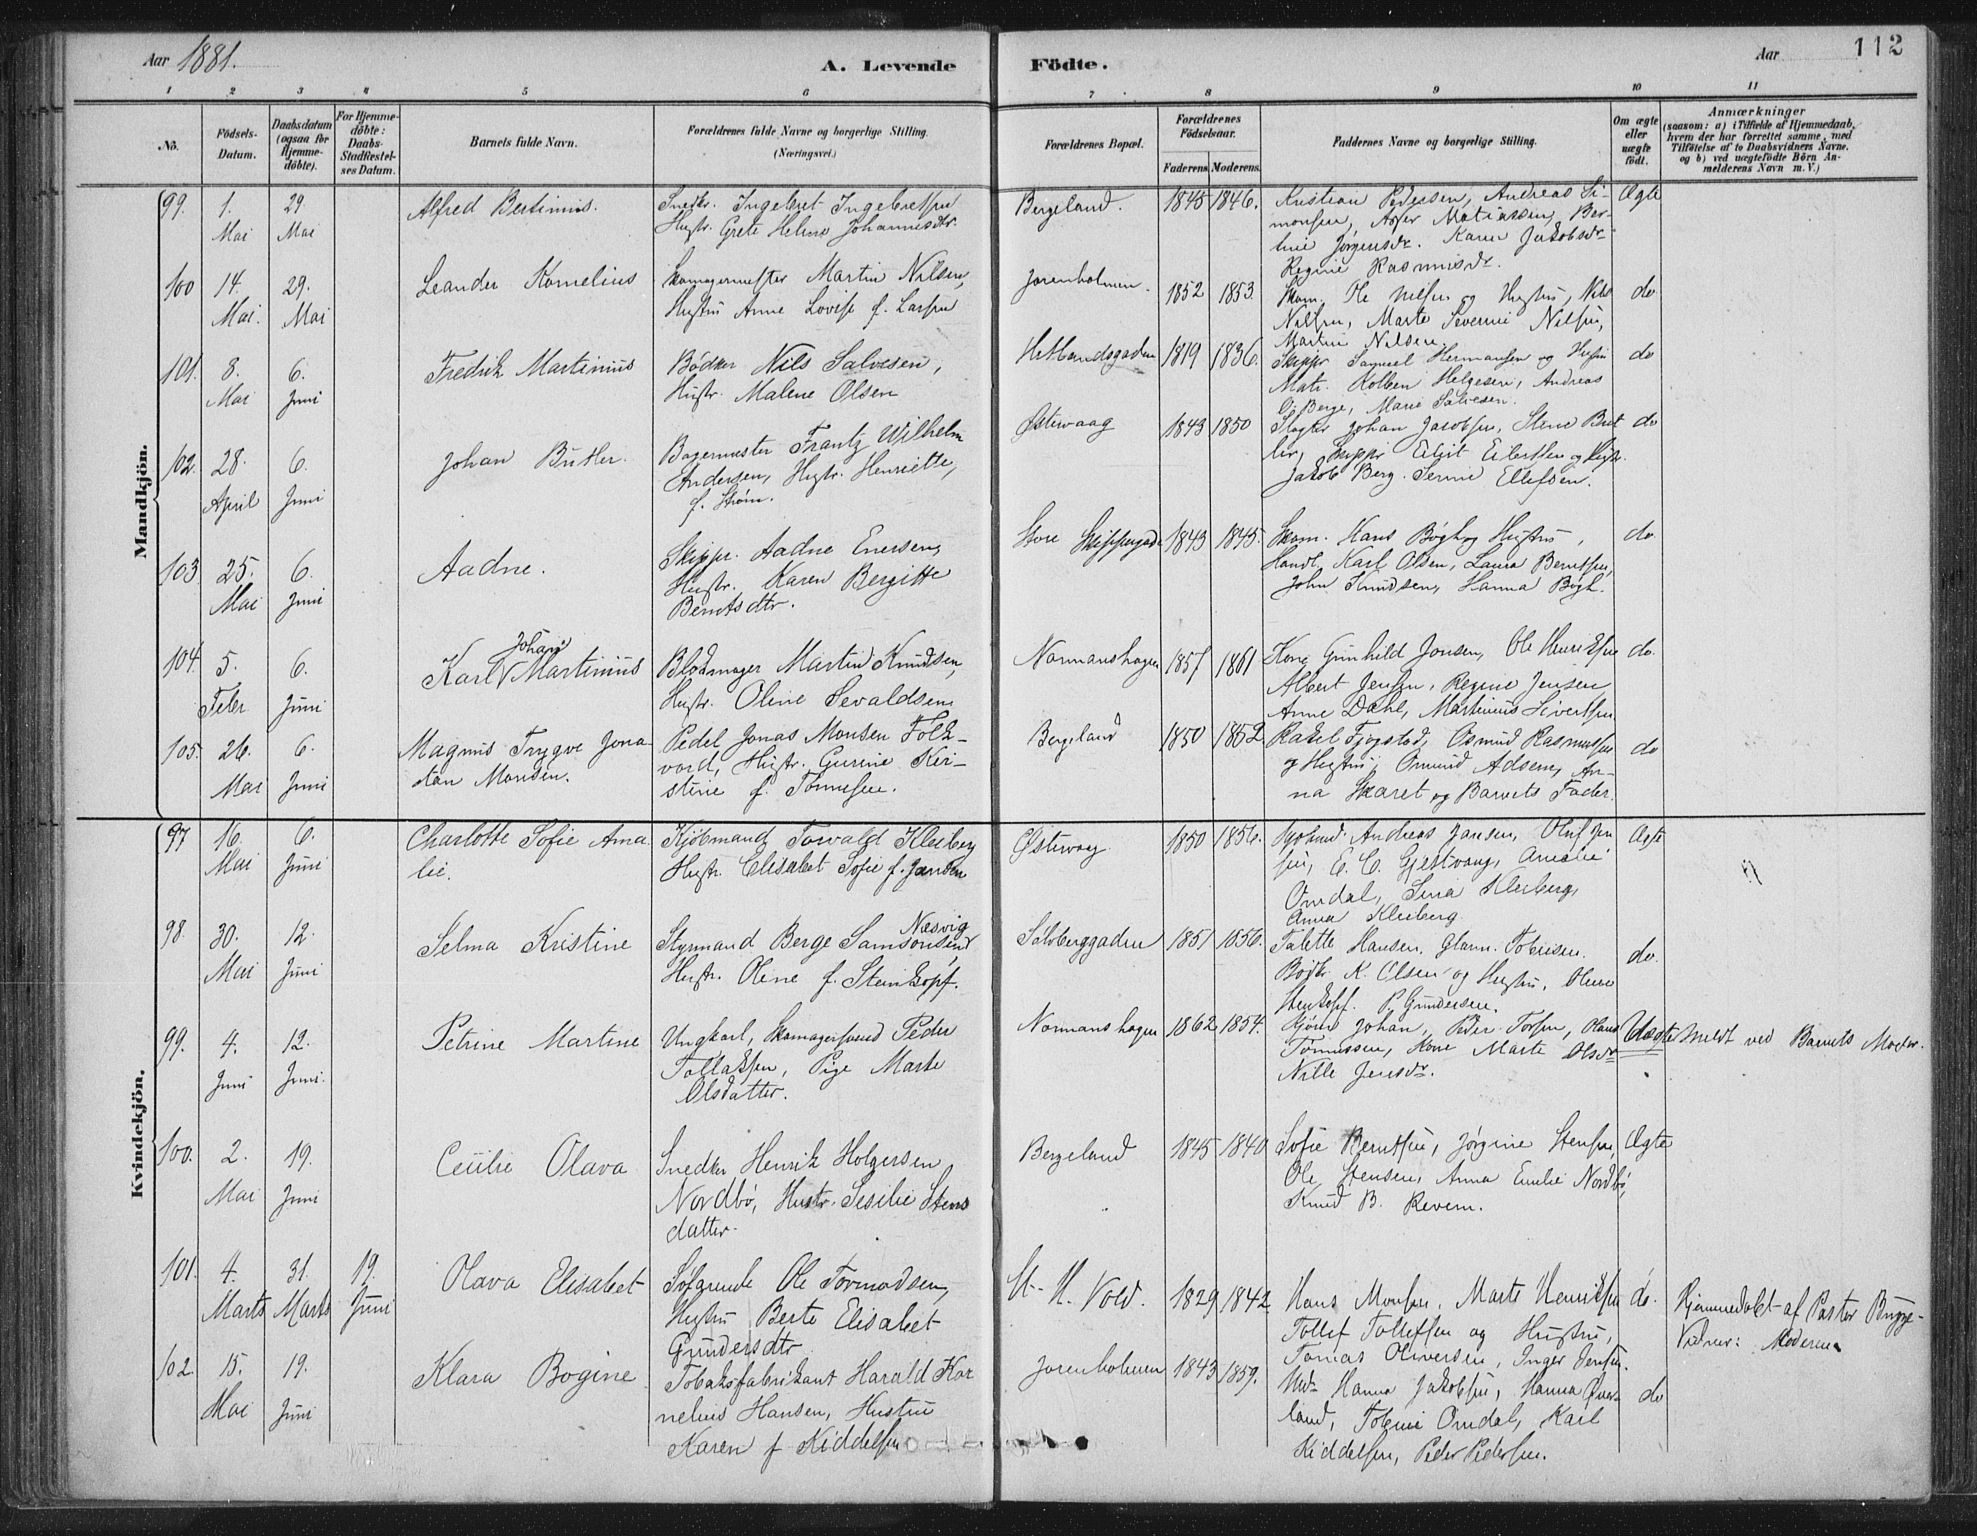 Aar 1881.
A. Levende Födte.
Aar
112
1 2 3 4 5 6 7 8 9 10 11
No.
Födsels-Datum.
Daabsdatum (ogsaa för Hjemmedöbte).
For Hjemmedöbte: Daabs-Stadfæstelses Datum.
Barnets fulde Navn.
Forældrenes fulde Navne og borgerlige Stilling.
(Næringsvei.)
Forældrenes Bopæl.
Forældrenes Födselsaar.
Faderens. Moderens.
Faddernes Navne og borgerlige Stilling.
Om ægte eller uægte födt.
Anmærkninger
(saasom: a) i Tilfælde af Hjemmedaab,
hvem der har forrettet samme, med
Tilföielse af to Daabsvidners Navne.
og b) ved uægtefödte Börn An-
melderens Navn m. V.)
Mandkjön.
99. 1. Mai 29. Mai
Alfred Bertinius.
Snedkr. Ingebret Ingebretsen
Hustr. Grete Helene Johannesdtr.
Bergeland. 1845 1846.
Kristian Pedersen, Andreas Si-
monsen, Asser Matiassen, Ber-
tine Jørgensdr. Karen Jakobsdr
Regine Rasmusdr.
Ægte
100 14. Mai. 29. Mai
Leander Kornelius
Skomagermester Martin Nilsen,
Hustru Anne Lovise f. Larsen
Jorenholmen. 1852 1853.
Skom. Ole Nilsen og Hustru, Nils
Nilsen, Marte Severine Nilsen,
Martin Nilsen.
do
101. 8. Mai 6. Juni
Fredrik Martinius
Bødker Nils Salvesen,
Hustr. Malene Olsen
Hetlandsgaden 1819 1836.
Skippr Samuel Hermansen og Hustru
Matr. Kolben Helgesen, Andreas
O. Berge, Marie Salvesen.
do
102. 28. April 6. Juni
Johan Butler.
Bagermester Frantz Wilhelm
Andersen, Hustr. Henriette,
f. Strøm.
Østervaag 1843 1850
Slagter Johan Jacobsen, Stine But
ler, Skippr Eilert Eilertsen og Hustr.
Jakob Berg. Serine Ellefsen.
do
103. 25. Mai 6. Juni
Aadne.
Skippr. Aadne Enersen,
Hustr. Karen Bergitte
Berntsdtr.
Store Skippergade 1843 1845.
Skom. Hans Bøgh og Hustru,
Handl. Karl Olsen, Laura Berntsen,
John Knudsen, Hanna Bøgh.
do
104. 5. Febr 6. Juni
Johan
Karl Martinius
Blokmager Martin Knudsen,
Hustr. Oline Sevaldsen,
Normanshagen 1857 1861
Kone Gunhild Jonsen, Ole Henriksen
Albert Jensen, Regine Jensen
Anne Dahl, Martinius Sivertsen
do.
105. 26. Mai 6. Juni
Magnus Trygve Jona-
tan Monsen.
Pedel Jonas Monsen Folk-
vord, Hustr. Gurine Kir-
stine f. Tønnesen.
Bergeland 1850 1852
Rakel Fjogstad, Osmund Rasmussen
og Hustru, Omund Adsen, An-
na Skaret og Barnets Fader.
do
Kvindekjön.
97 16. Mai 6. Juni
Charlotte Sofie Ama
lie.
Kjøbmand Torvald Kleiberg
Hustr. Elisabet Sofie f. Jansen
Østervaag. 1850 1856.
Andreas Jansen, Oluf Jan
sen, E. C. Gjestvang, Amalie
Omdal, Sina Kleiberg,
Anna Kleiberg
Ægte
98. 30. Mai 12. Juni
Selma Kristine
Næsvig
Styrmand Berge Samsonsen
Hustr. Oline f. Steinkopf.
Sølvberggaden 1851 1856.
Talette Hansen, Tobiasen.
Bødkr. K. Olsen og Hustru, Oline
Stenkopf. P. Gundersen.
do.
99. 4. Juni 12. Juni.
Petrine Martine
Ungkarl, Skomagersvend Peder
Tollaksen, Pige Marte
Olsdatter.
Normanshagen 1862 1854.
Johan, Peder Torsen, Hans
Tønnessen, Kone Marte Olsdr
Nille Jensdr.
Uægte
meldt ved Barnets Moder.
100. 2. Mai 19. Juni
Cecilie Olava
Snedker Henrik Holgersen
Nordbø, Hustr. Sesilie Stens
datter.
Bergeland 1845 1840
Sofie Berntsen, Jørgine Stensen,
Ole Stensen, Anna Emilie Nordbø,
Knud B. Revem.
Ægte
101. 4. Marts 31. Marts 19. Juni
Olava Elisabet
Søfarende Ole Tormodsen,
Hustru Berte Elisabet
Gundersdtr
St. H. Vold. 1829 1842
Hans Monsen, Marte Henriksen
Tollef Tollefsen og Hustru,
Tomas Oliversen, Inger Jensen.
do.
Hjemmedøbt af Pastor Bugge.
Vidner: Moderen
102. 15. Mai 19. Juni
Klara Bogine
Tobaksfabrikant Harald Kor
nelius Hansen, Hustru
Karen f. Kiddelsen
Jorenholmen 1843 1859.
Hanna Jakobsen, Hanna Øver-
land, Tobine Omdal, Karl
Kiddelsen, Peder Pedersen.
do